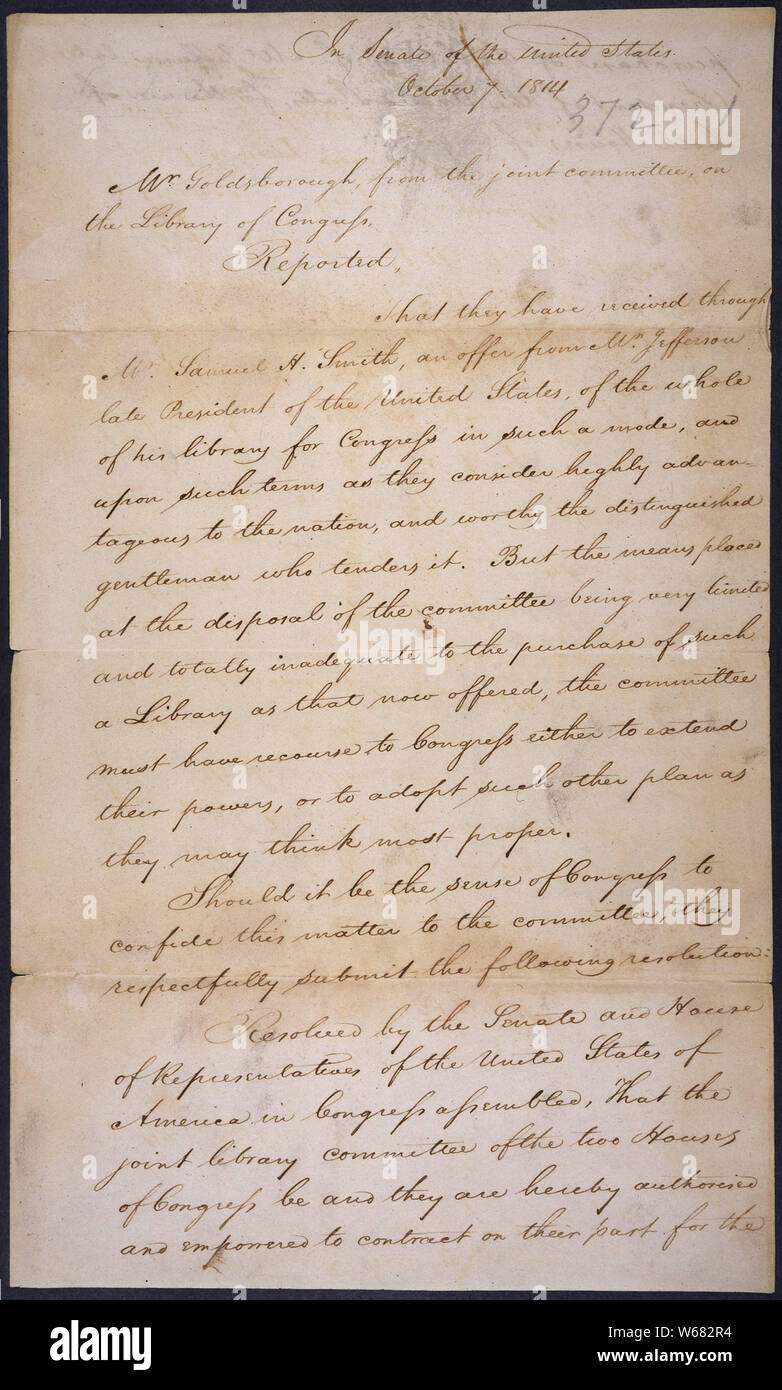 In Senate of the United States.
October 7. 1814
372 1
Mr Goldsborough, from the joint committee, on
the Library of Congress,
Reported,
That they have received through
Mr. Samuel H. Smith, an offer from Mr. Jefferson
late President of the United States, of the whole
of his library for Congress in such a mode, and
upon such terms as they consider highly advan-
tageous to the nation, and worthy the distinguished
gentleman who tenders it. But the means placed
at the disposal of the committee being very limited
and totally inadequate to the purchase of such
a Library as that now offered, the committee
must have recourse to Congress either to extend
their powers, or to adopt such other plan as
they may think most proper.
Should it be the sense of Congress to
confide this matter to the committee, they
respectfully submit the following resolution:
Resolved by the Senate and House
of Representatives of the United States of
America in Congress assembled, That the
joint library committee of the two Houses
of Congress be and they are hereby authorised
and empowered to contract on their part for the
alamy
Image ID: W682R4
www.alamy.com